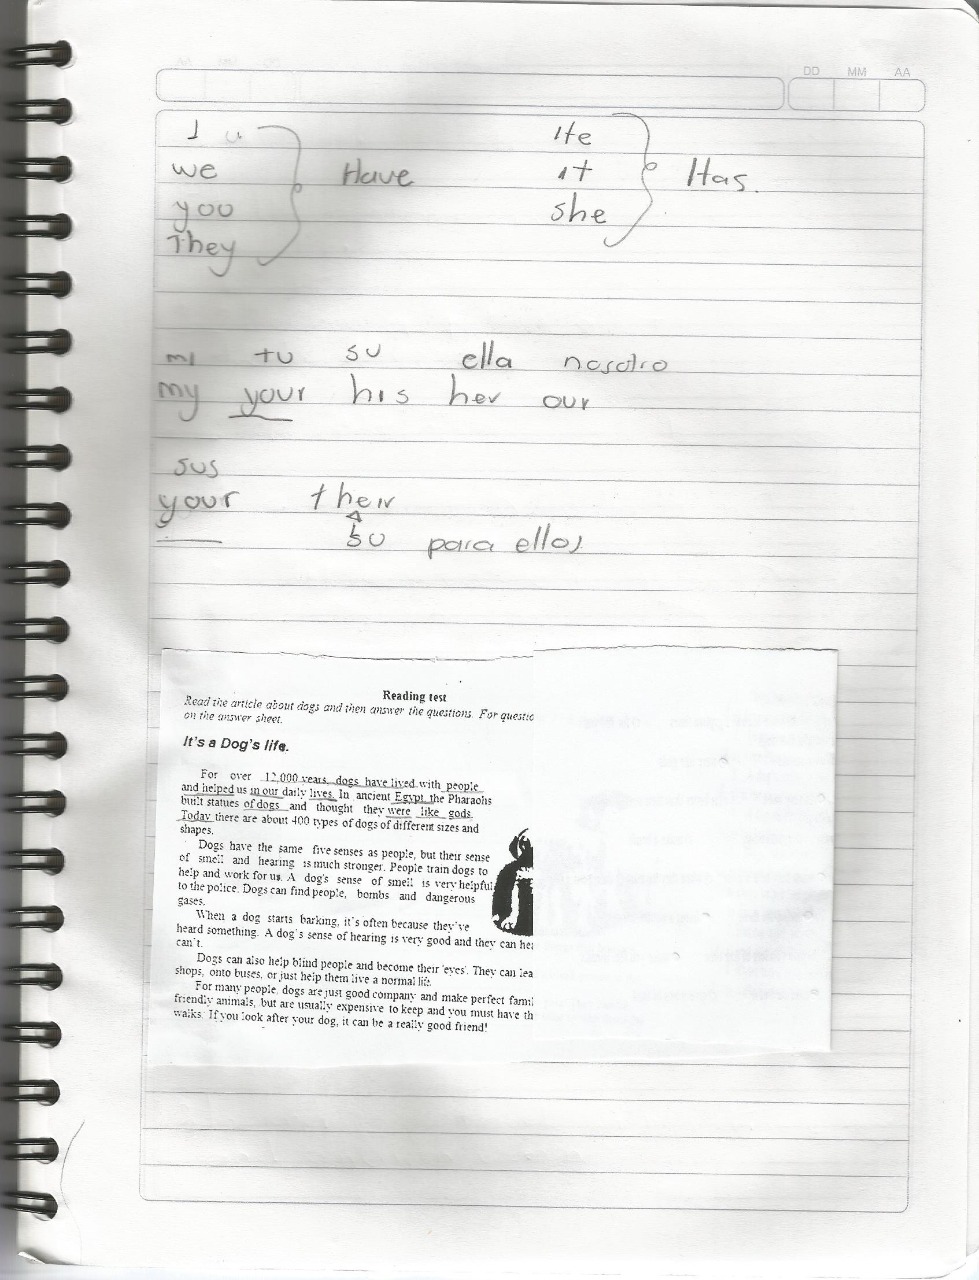 DD MM AA
I u
we
you
They
Have
He
it
she
Has.
mi tu su ella nosotro
my your his her our
sus
your their
su para ellos
Reading test
Read the article about dogs and then answer the questions. For questio
on the answer sheet.
It's a Dog's life.
For over 12,000 years, dogs have lived with people
and helped us in our daily lives. In ancient Egypt the Pharaohs
built statues of dogs and thought they were like gods.
Today there are about 400 types of dogs of different sizes and
shapes.
Dogs have the same five senses as people, but their sense
of smell and hearing is much stronger. People train dogs to
help and work for us. A dog's sense of smell is very helpful
to the police. Dogs can find people, bombs and dangerous
gases.
When a dog starts barking, it's often because they've
heard something. A dog's sense of hearing is very good and they can hea
can't.
Dogs can also help blind people and become their 'eyes'. They can lea
shops, onto buses, or just help them live a normal life.
For many people, dogs are just good company and make perfect famil
friendly animals, but are usually expensive to keep and you must have th
walks. If you look after your dog, it can be a really good friend!